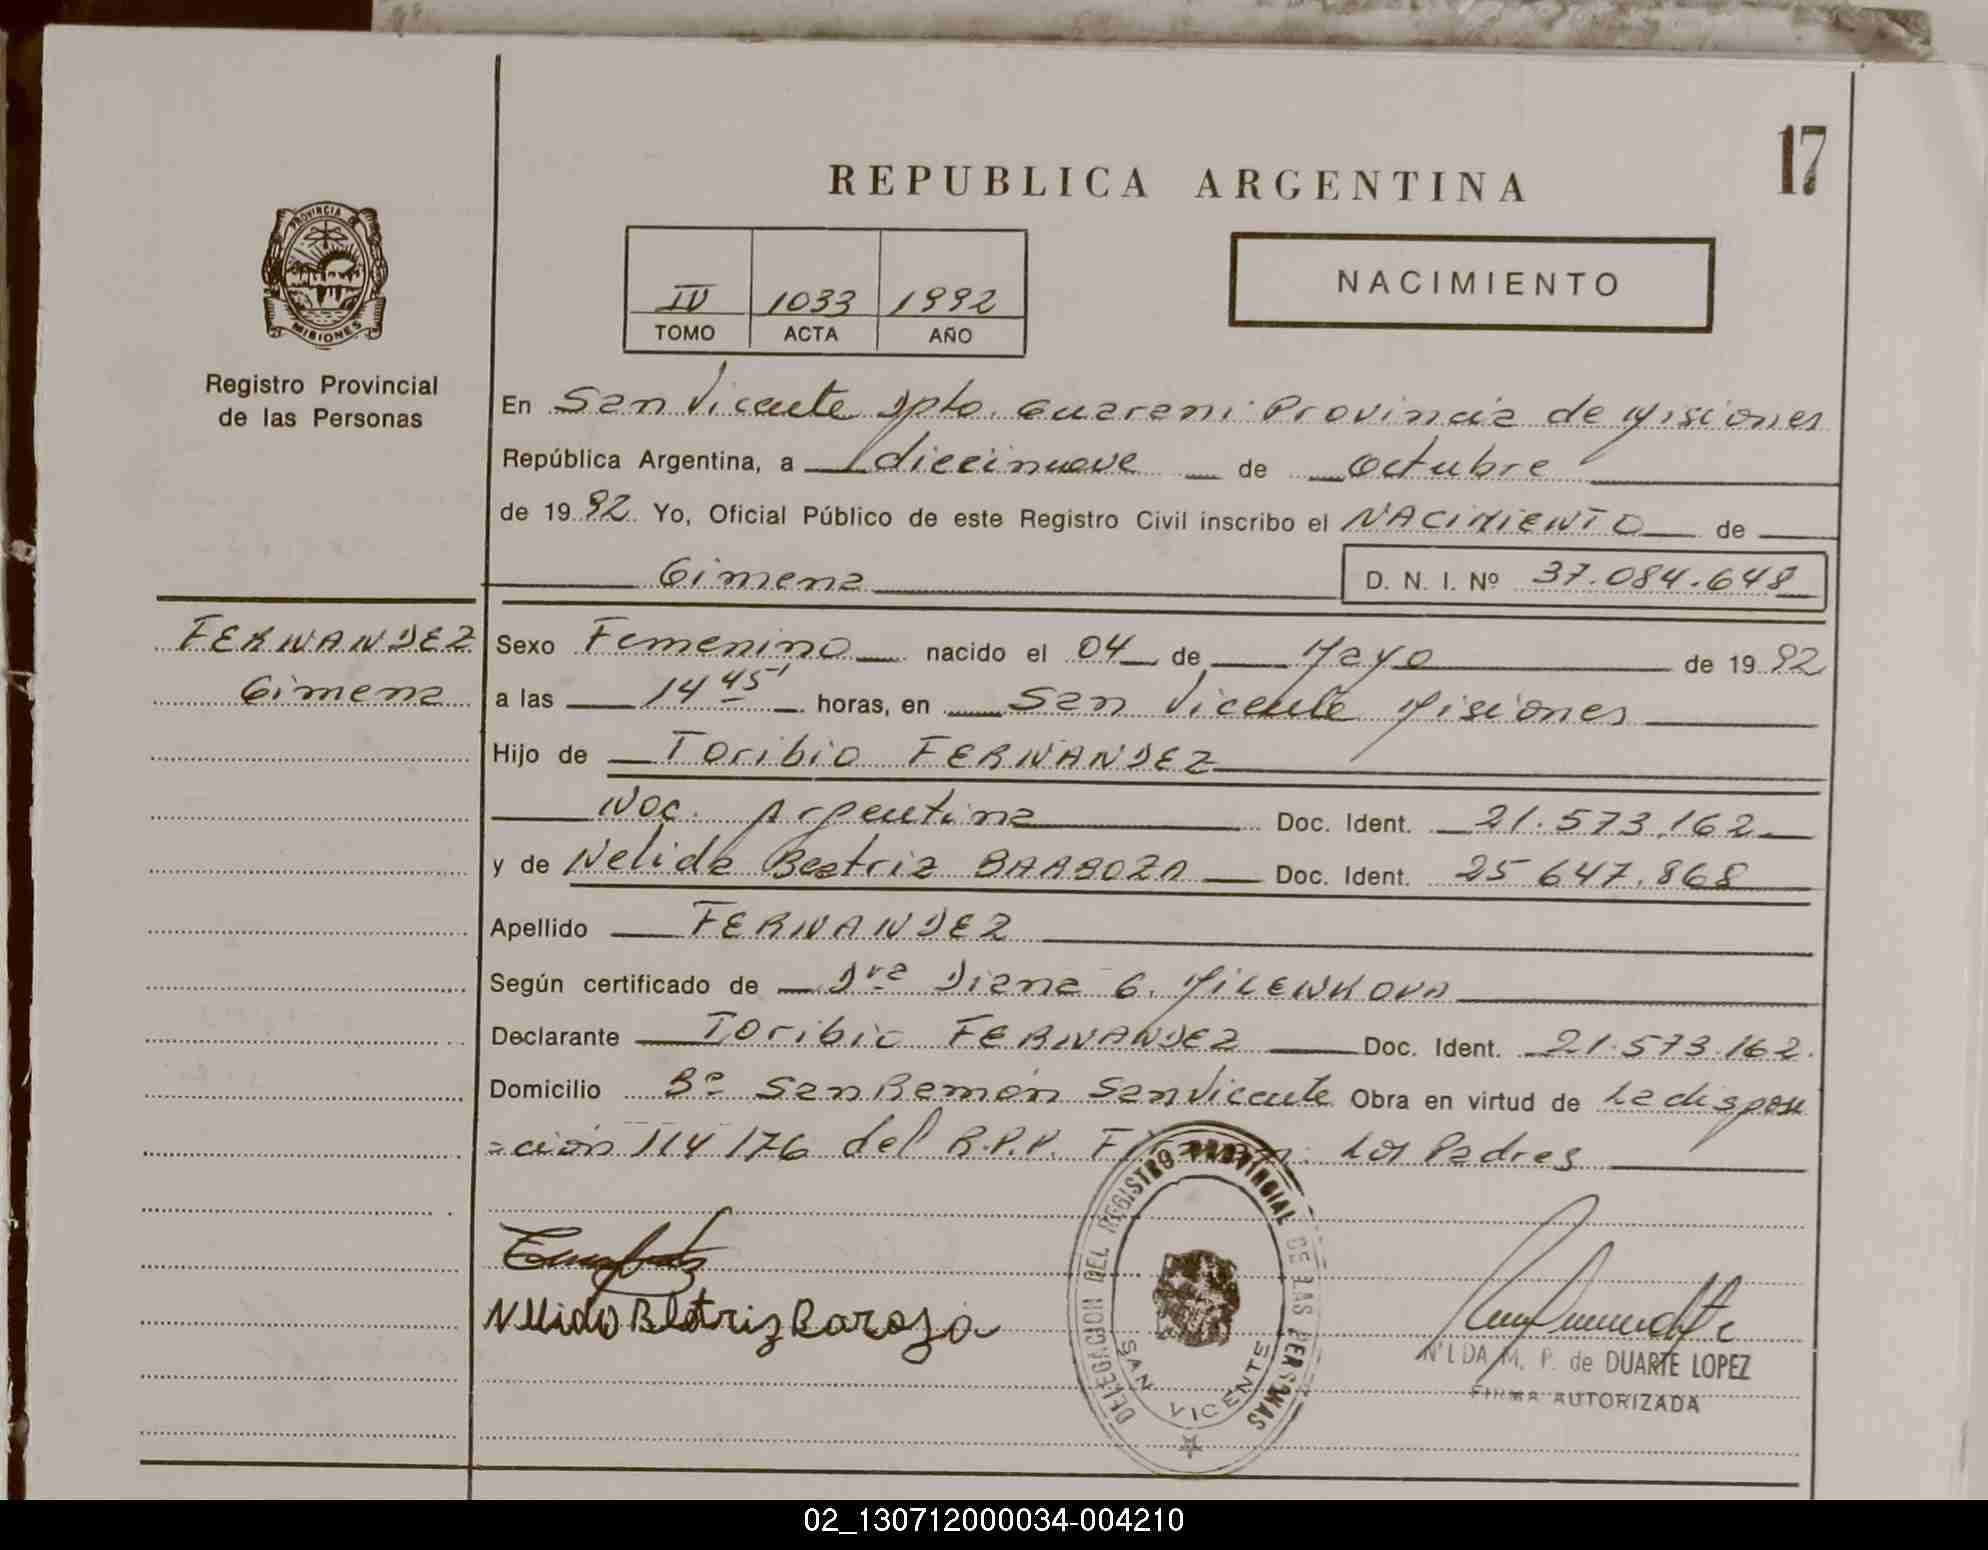 17
REPUBLICA ARGENTINA
PROVINCIA DE
MISIONES
IV 1033 1992
TOMO ACTA AÑO
NACIMIENTO
Registro Provincial
de las Personas
En San Vicente Dpto. Guarani Provincia de Misiones
República Argentina, a diecinueve de Octubre
de 1992 Yo, Oficial Público de este Registro Civil inscribo el NACIMIENTO de
Gimena D. N. I. Nº 37.084.648
FERNANDEZ
Gimena
Sexo Femenino nacido el 04 de Mayo de 1992
a las 14 45' horas, en San Vicente Misiones
Hijo de Toribio FERNANDEZ
Nac. Argentina Doc. Ident. 21.573.162
y de Nelida Beatriz BARBOZA Doc. Ident. 25 647.868
Apellido FERNANDEZ
Según certificado de Dra Diana G. MILENKOVA
Declarante Toribio FERNANDEZ Doc. Ident. 21.573.162.
Domicilio Bº San Ramón San Vicente Obra en virtud de la disposi
=ción 114/76 del R.P.P. Los Padres
Nelida Beatriz Barosa
DELEGACION DEL REGISTRO PROVINCIAL DE LAS PERSONAS
SAN VICENTE
NILDA M. P. de DUARTE LOPEZ
FIRMA AUTORIZADA
02_130712000034-004210